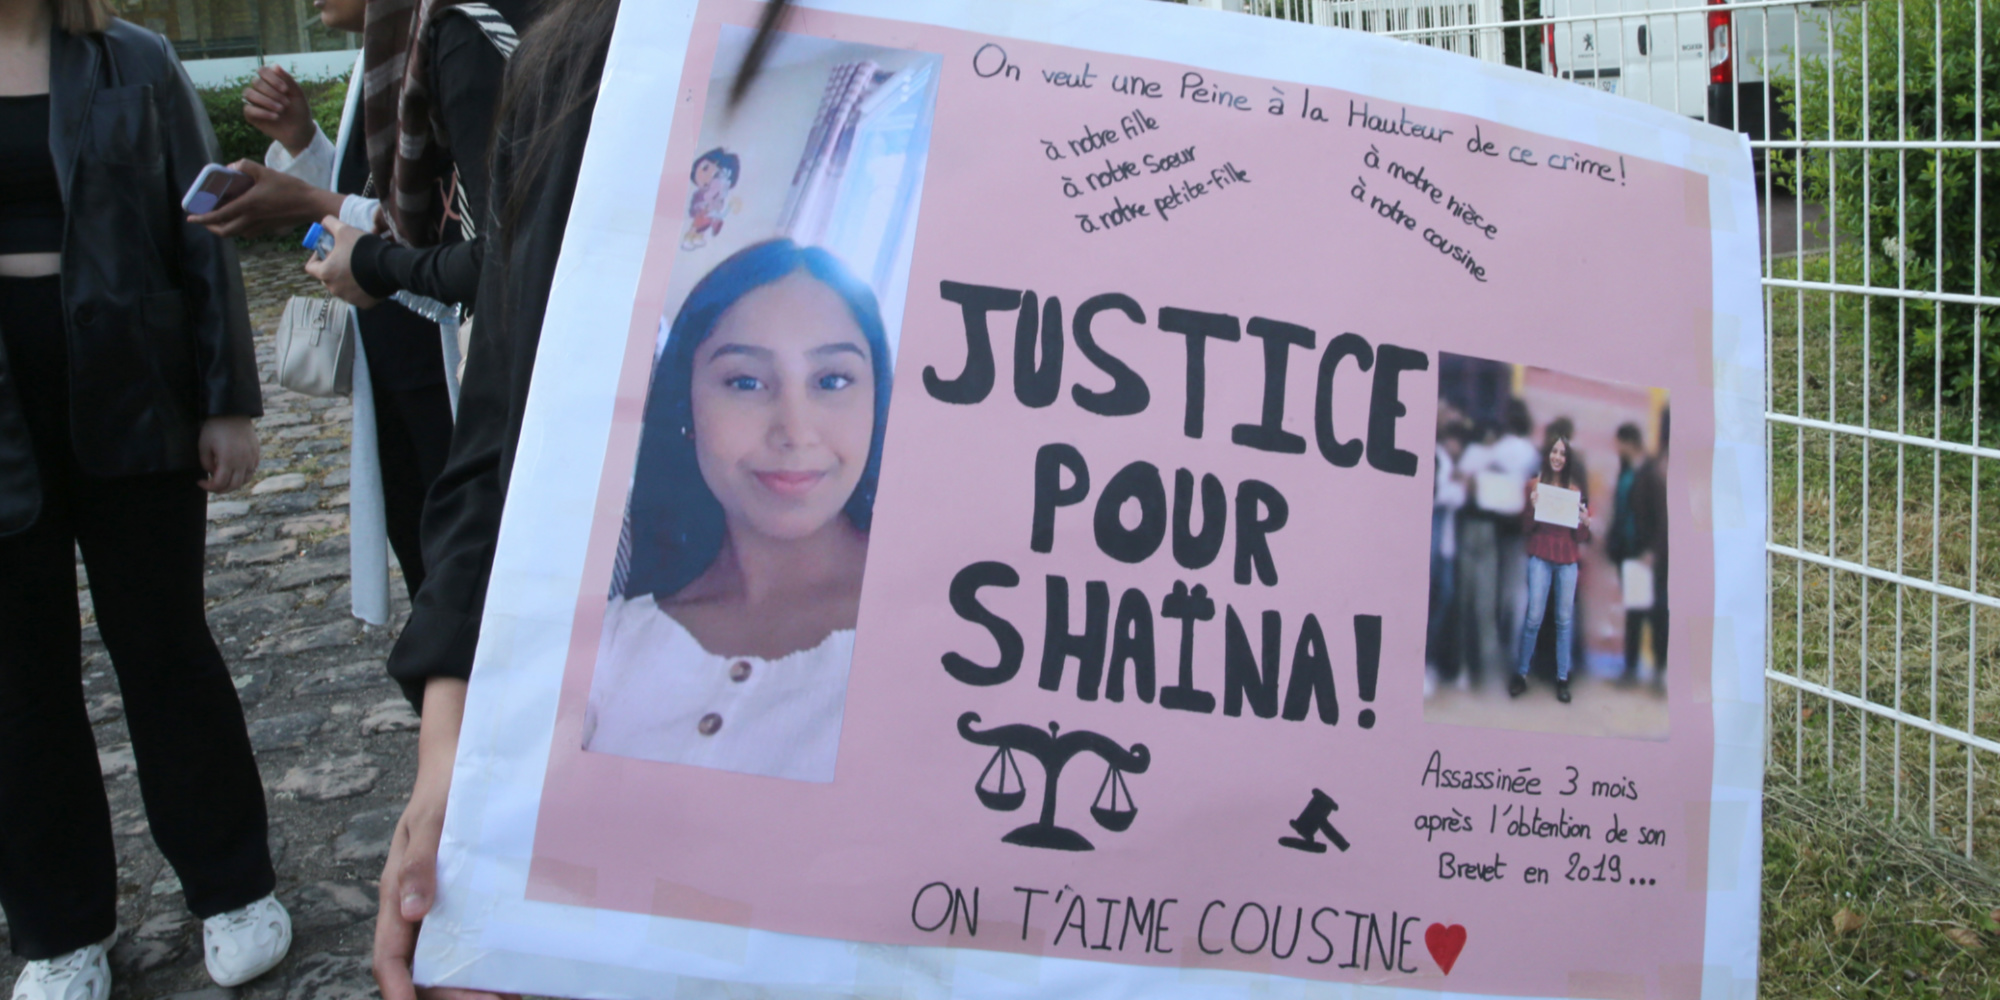 On veut une Peine à la Hauteur de ce crime!
à notre fille
à notre Soeur
à notre petite-fille
à notre nièce
à notre cousine
JUSTICE
POUR
SHAÏNA!
Assassinée 3 mois
après l'obtention de son
Brevet en 2019...
ON T'AIME COUSINE